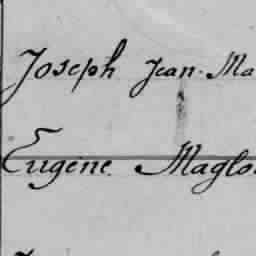 Joseph Jean-Ma
Eugène Maglo